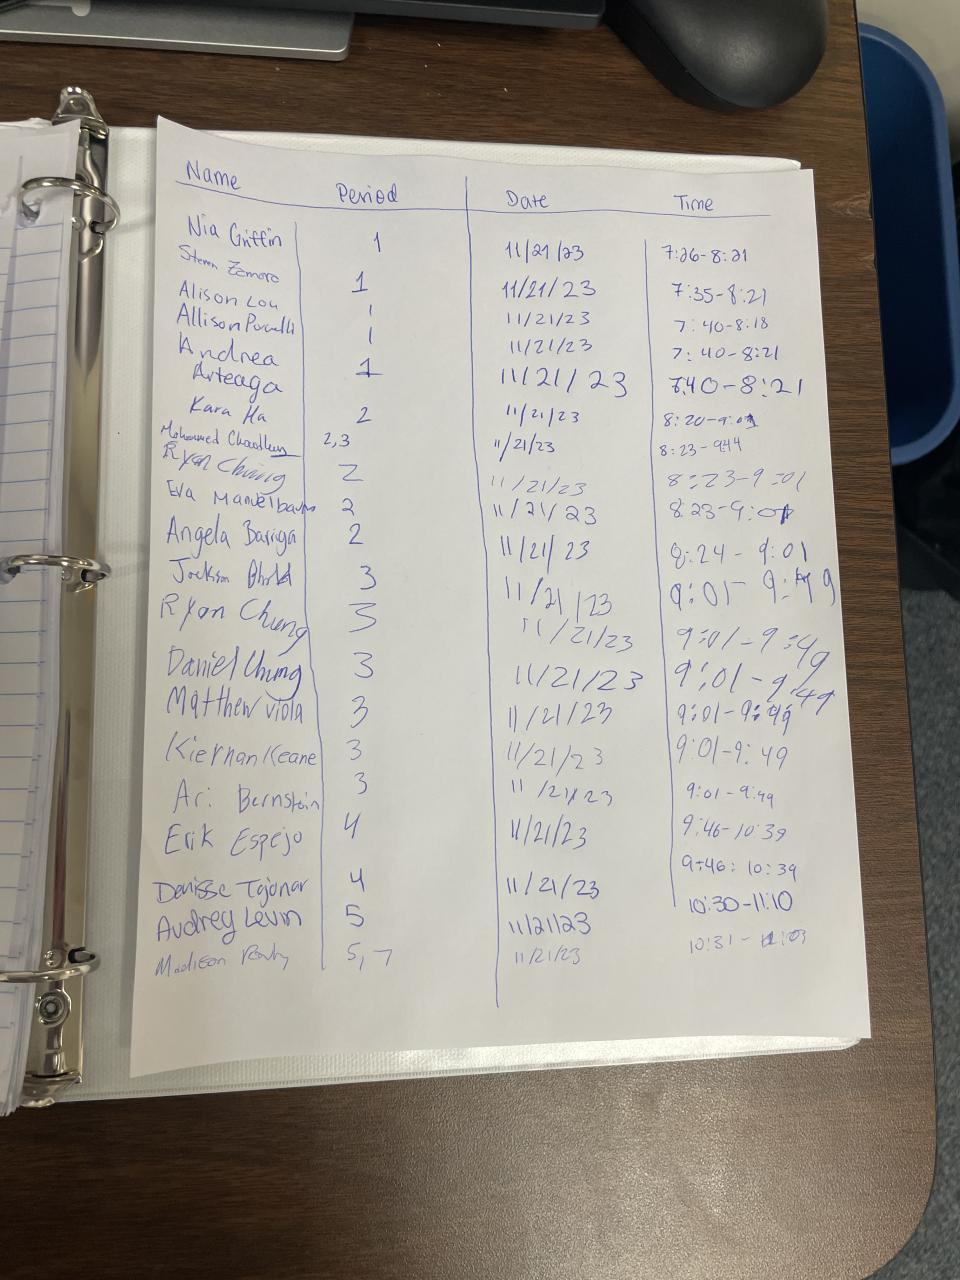 Name Period Date Time
Nia Griffin 1 11/21/23 7:26-8:21
Steven Zamora 1 11/21/23 7:35-8:21
Alison Lou 1 11/21/23 7:40-8:18
Allison Porcelli 1 11/21/23 7:40-8:21
Andrea
Arteaga 1 11/21/23 7:40-8:21
Kara Ha 2 11/21/23 8:20-9:01
Mohammed Chowdhury 2,3 11/21/23 8:23-9:44
Ryan Chung 2 11/21/23 8:23-9:01
Eva Mandelbaum 2 11/21/23 8:23-9:01
Angela Bariga 2 11/21/23 8:24-9:01
Jackson 3 11/21/23 9:01-9:49
Ryan Chung 3 11/21/23 9:01-9:49
Daniel Chung 3 11/21/23 9:01-9:49
Matthew Viola 3 11/21/23 9:01-9:49
Kiernan Keane 3 11/21/23 9:01-9:49
Ari Bernstein 3 11/21/23 9:01-9:49
Erik Espejo 4 11/21/23 9:46-10:39
Denisse Tajonar 4 11/21/23 9:46:10:39
Audrey Levin 5 11/21/23 10:30-11:10
Madison 5,7 11/21/23 10:31-